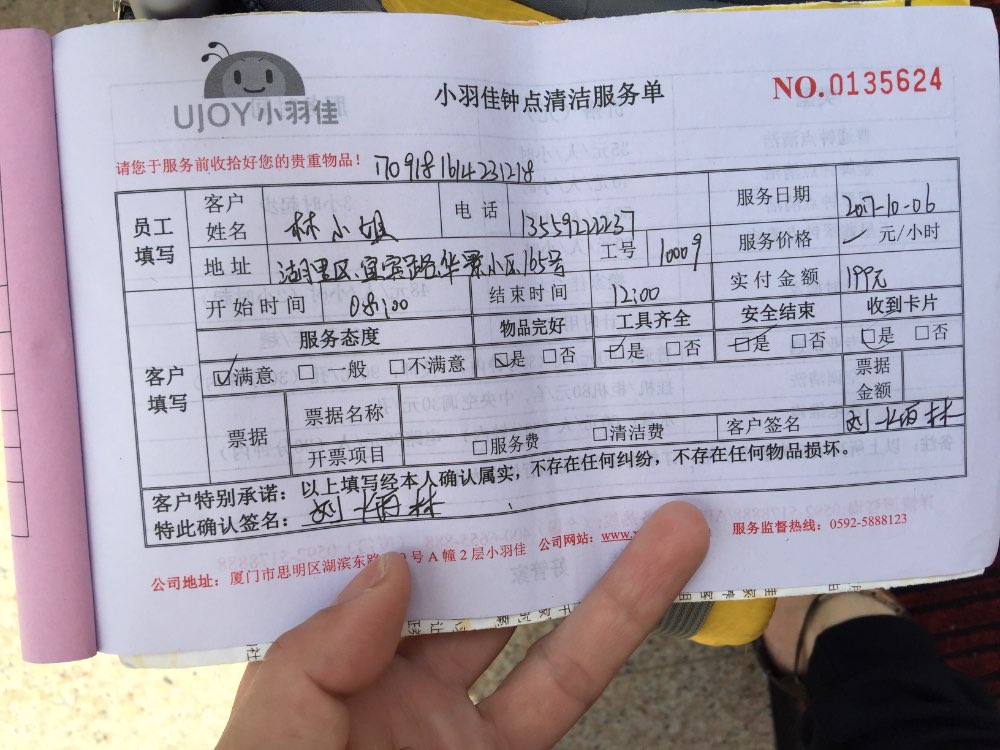 UJOY小羽佳
小羽佳钟点清洁服务单
NO.0135624
请您于服务前收拾好您的贵重物品！
1709181614231218
员工填写 客户姓名 林小姐 电话 13559222237 服务日期 2017-10-06
地址 湖里区 宜宾路 华景小区165号 工号 10009 服务价格 元/小时
开始时间 08:00 结束时间 12:00 实付金额 199元
客户填写 服务态度 物品完好 工具齐全 安全结束 收到卡片
☑满意 □一般 □不满意 ☑是 □否 ☑是 □否 ☑是 □否 ☑是 □否
票据 票据名称 票据金额
开票项目 □服务费 □清洁费 客户签名
客户特别承诺：以上填写经本人确认属实，不存在任何纠纷，不存在任何物品损坏。
特此确认签名：
服务监督热线：0592-5888123
公司地址：厦门市思明区湖滨东路 号A幢2层小羽佳 公司网站：www.